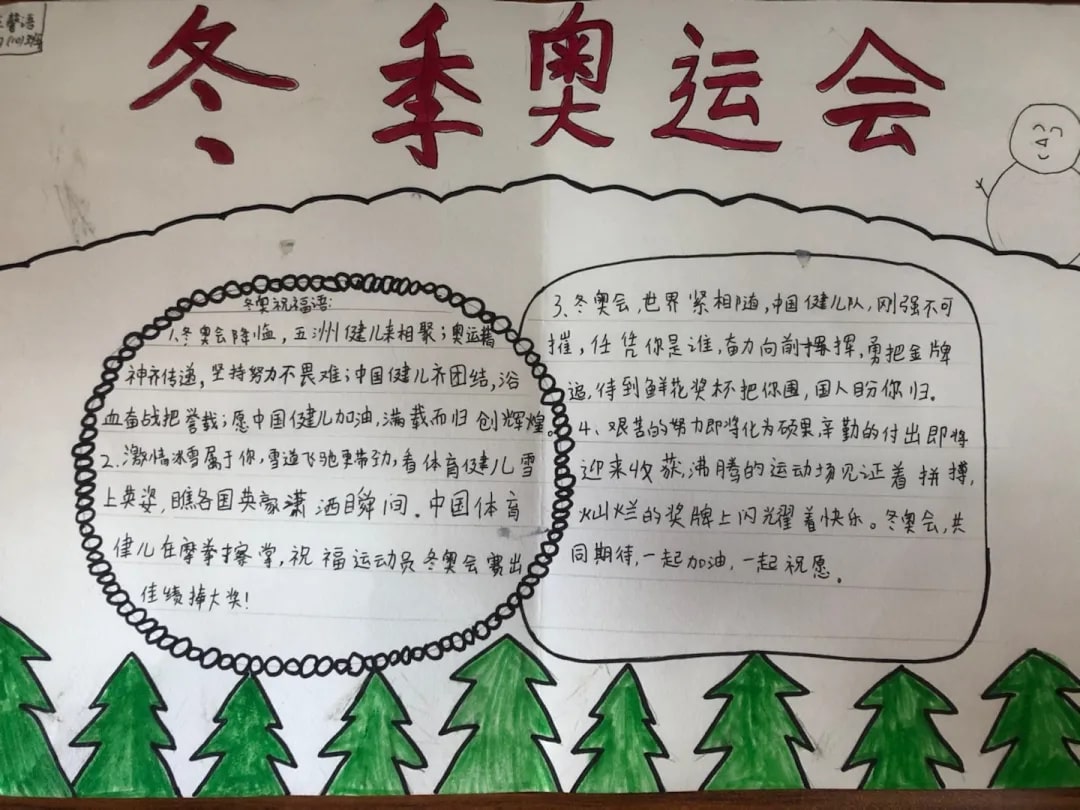 馨语
冬季奥运会
冬奥祝福语:
1.冬奥会降临,五洲健儿来相聚;奥运精
神齐传递,坚持努力不畏难;中国健儿齐团结,浴
血奋战把誉载;愿中国健儿加油,满载而归创辉煌。
2.激情冰雪属于你,雪道飞驰更带劲,看体育健儿雪
上英姿,瞧各国英豪潇洒瞬间。中国体育
健儿在摩拳擦掌,祝福运动员冬奥会赛出
佳绩捧大奖!
3、冬奥会,世界紧相随,中国健儿队,刚强不可
摧,任凭你是谁,奋力向前挥,勇把金牌
追,待到鲜花奖杯把你围,国人盼你归。
4、艰苦的努力即将化为硕果,辛勤的付出即将
迎来收获,沸腾的运动场见证着拼搏,
灿烂的奖牌上闪耀着快乐。冬奥会,共
同期待,一起加油,一起祝愿。